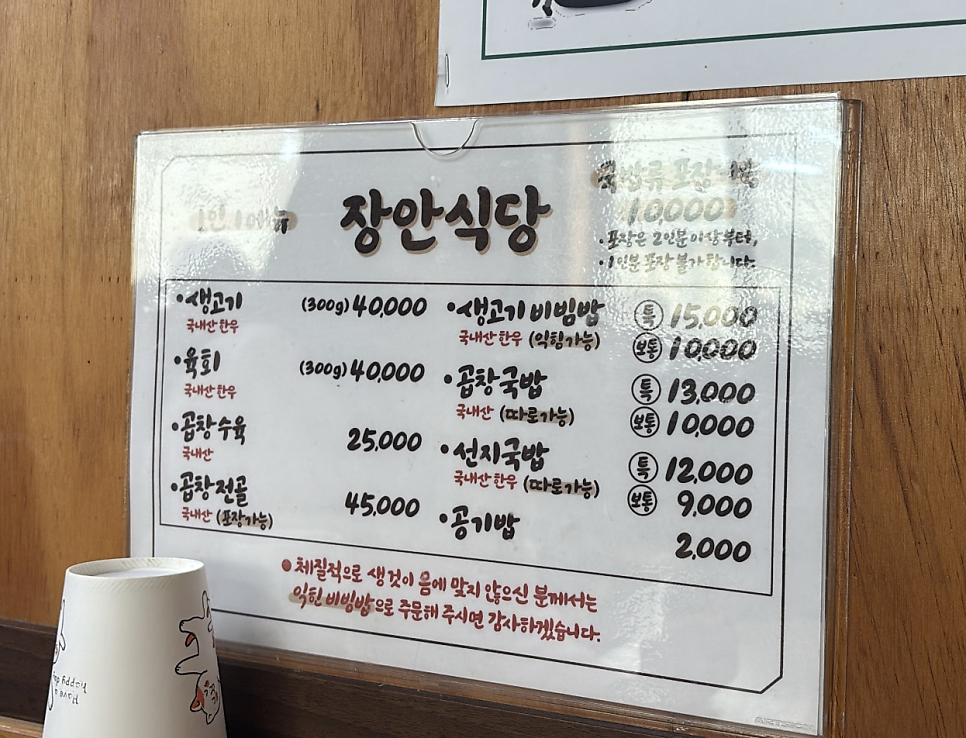 1인 1메뉴
장안식당
국밥류 포장
10,000
·포장은 2인분 이상부터,
·1인분 포장 불가합니다.
·생고기 (300g) 40,000
국내산 한우
·육회 (300g) 40,000
국내산 한우
·곱창수육 25,000
국내산
·곱창전골 45,000
국내산 (포장가능)
·생고기 비빔밥 특 15,000
국내산 한우 (익힘가능) 보통 10,000
·곱창국밥 특 13,000
국내산 (따로가능) 보통 10,000
·선지국밥 특 12,000
국내산 한우 (따로가능) 보통 9,000
·공기밥 2,000
·체질적으로 생것이 몸에 맞지 않으신 분께서는
익힌 비빔밥으로 주문해 주시면 감사하겠습니다.
Have a
happy day